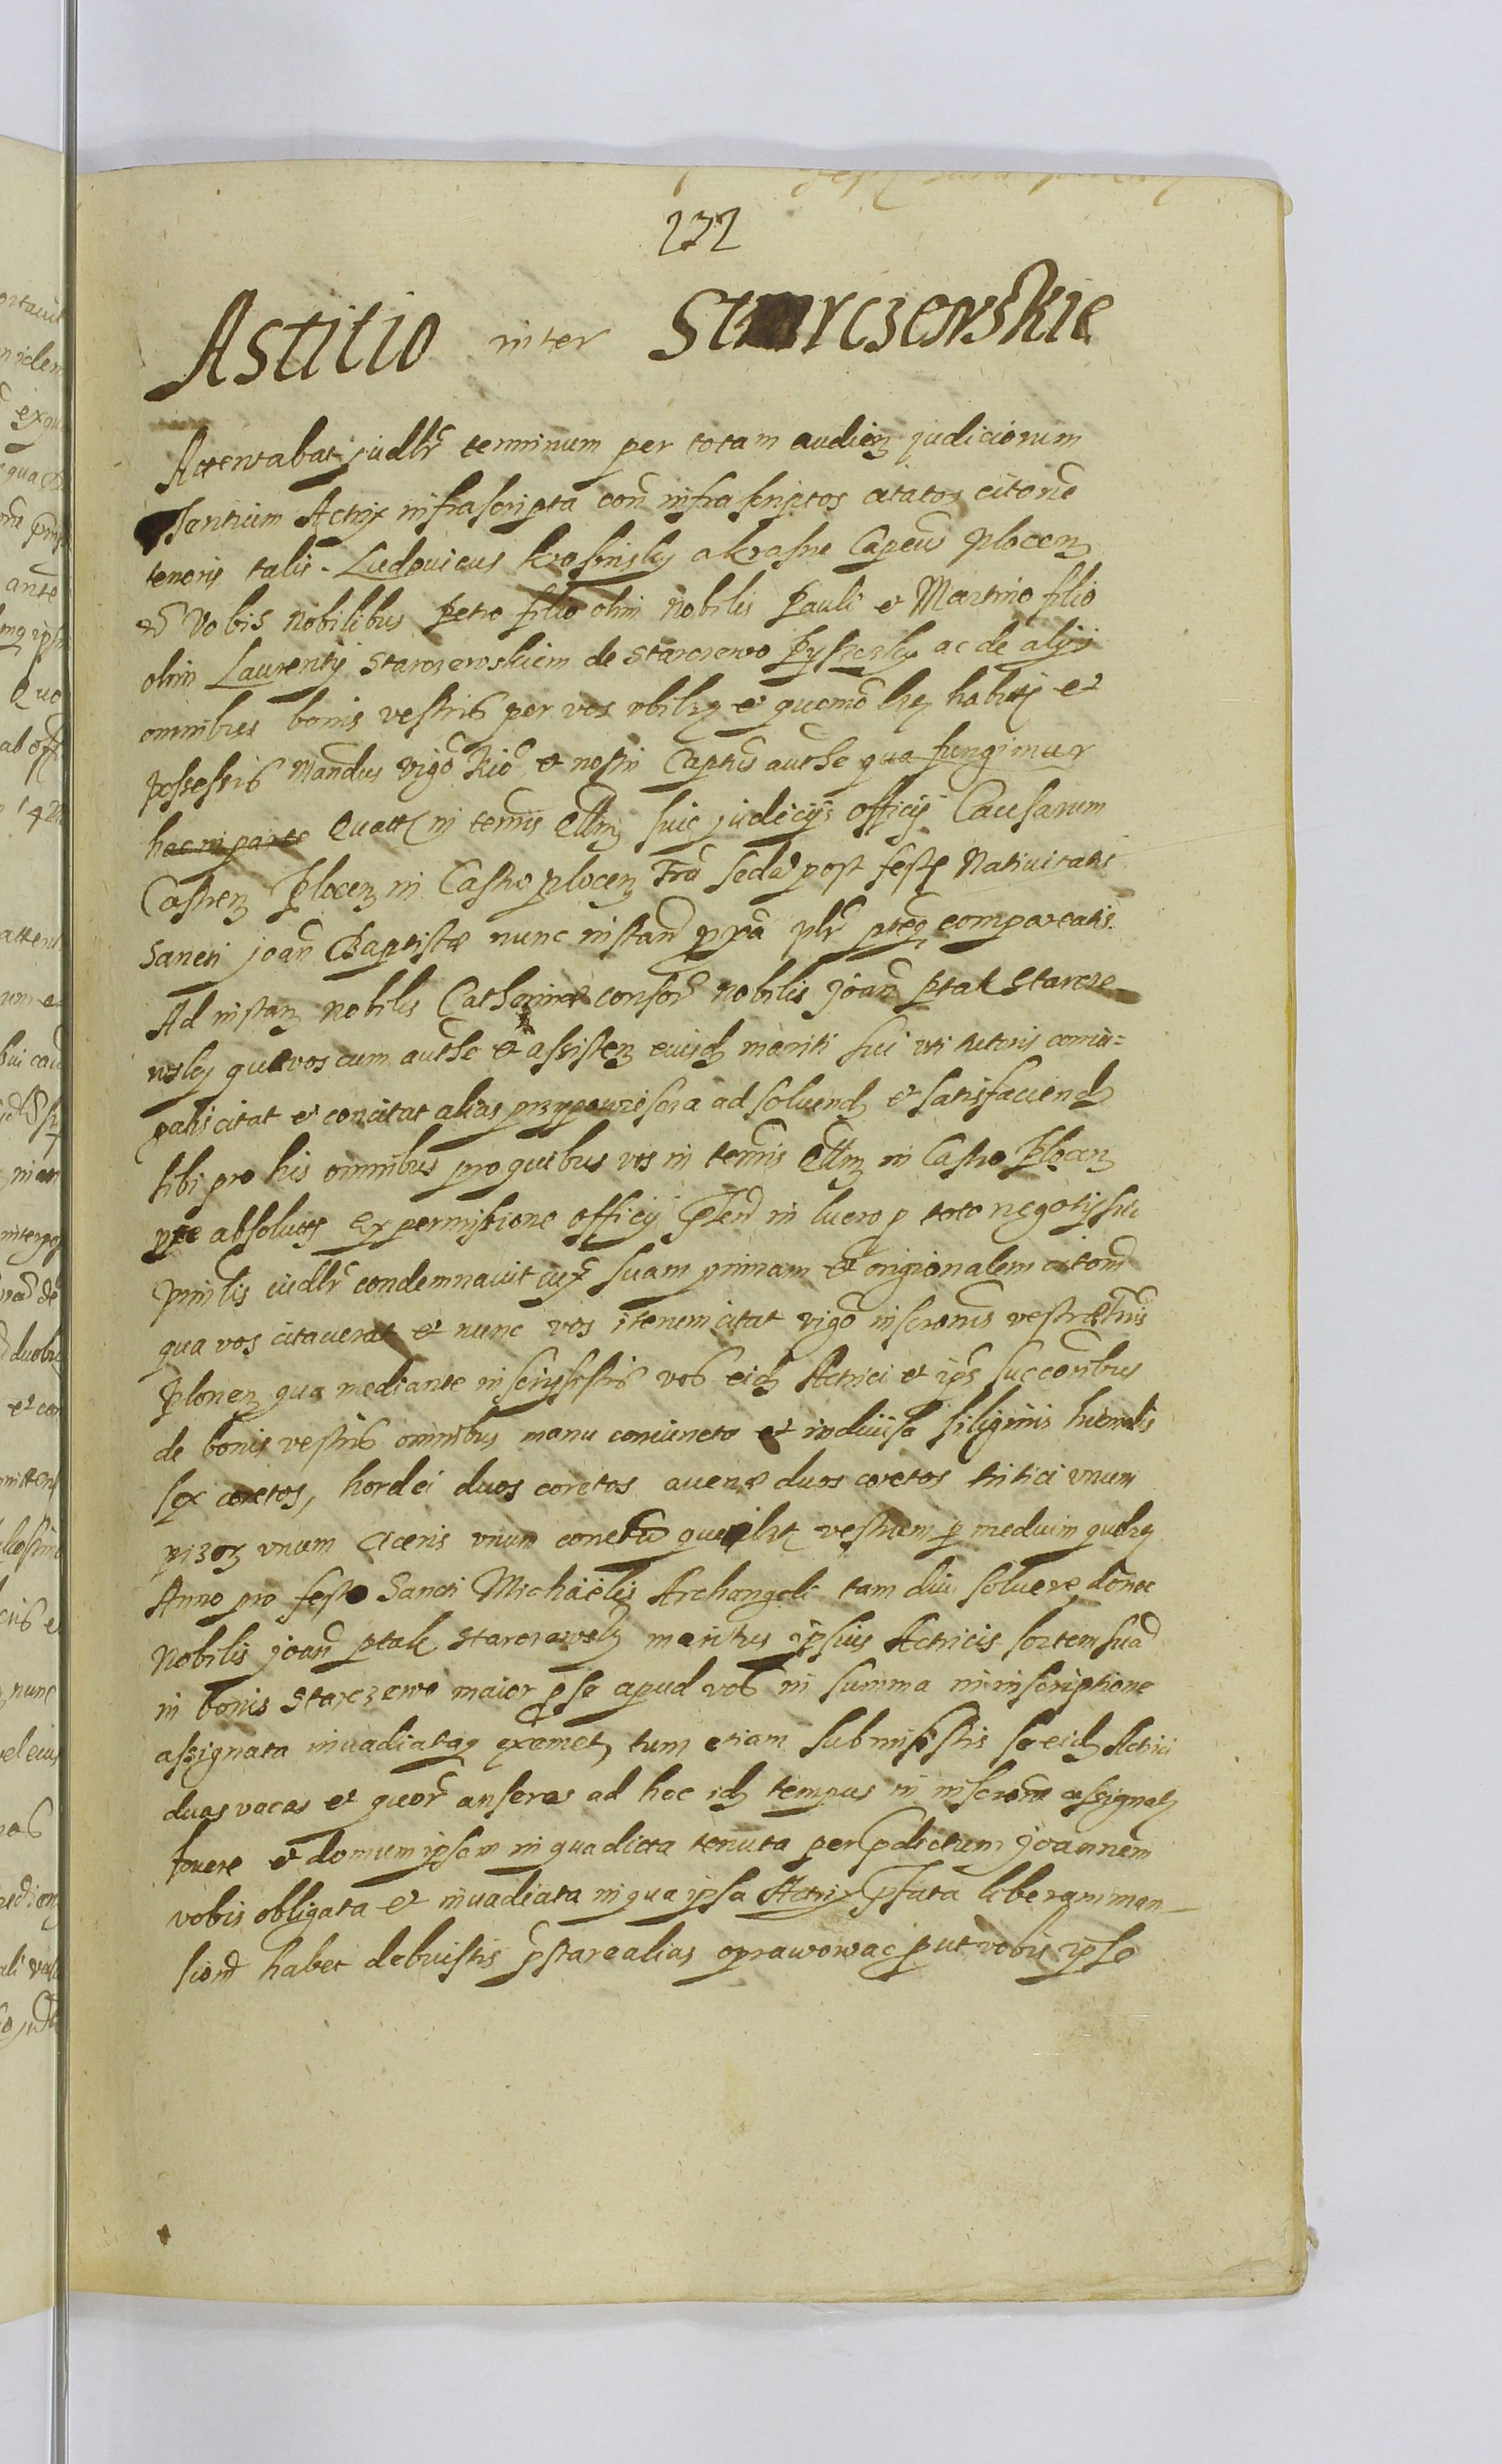 232
Astitio inter Starczewskie
Attentabat judlr terminum per totam audien judiciorum
Actrix infrascripta con infrascriptos citatos citone
tenoris talis. Ludovicus Krasinsky a Krasne Capeus plocen
vobis nobilibus Petro filio olim nobilis Pauli et Martino filio
olim Laurentij Starczewskiem de Starczewo ac de alijs
omnibus bonis vestris per vos vbilz et quomo lz habitis et
possessis Mandus vigo Rio et nostri Captus authe qua fungimur
hac in parte Quatt in termis judicijs officij Causarum
Castren Plocen in Castro plocen post fest Nativitatis
Sancti Joan Baptistæ nunc instan comparcatis.
Ad instan nobilis Catherinæ consor nobilis Joan Ptak Starcze-
wsky quævos cum authe et assisten eiusd mariti sui vti tutoris coniu=
galis citat et concitat alias przypowiescia ad soluend et satisfaciend
sibi pro his omnibus pro quibus vos in termis in Castro Plocen
absolutis Ex permissione officij in lucro p toto negotij sui
judlr condemnauit iux suam primam et originalem citom
qua vos citauerat et nunc vos iterum citat vigo inscronis vestræ
Plonen qua mediante inscripsistis vos eid Actrici et ips succoribus
de bonis vestris omnibus manu coniuncta et indiuisa siliginis hiemalis
sex coretos, hordei duos coretos auenæ duos coretos tritici vnum
pizon vnum Ciceris vnum coretu vestrum p medium quolz
Anno pro festo Sancti Michaelis Archangeli tam diu soluere donec
Nobilis Joan Ptak Starczewsky maritus ipsius Actricis sortem sua
in bonis Starczewo maior p se apud vos in summa in inscriptione
assignata inuadiatas eximet, tum etiam submisistis se eid Actrici
duas vacas et anseres ad hoc id tempus in inscrone assignat
fouere et domum ipsam in qua dicta tenuta per pdictum Joannem
vobis obligata et inuadiata in qua ipsa Actrix pfata liberam man-
sione habet debuistis pstare alias oprawowac put vobis ipse